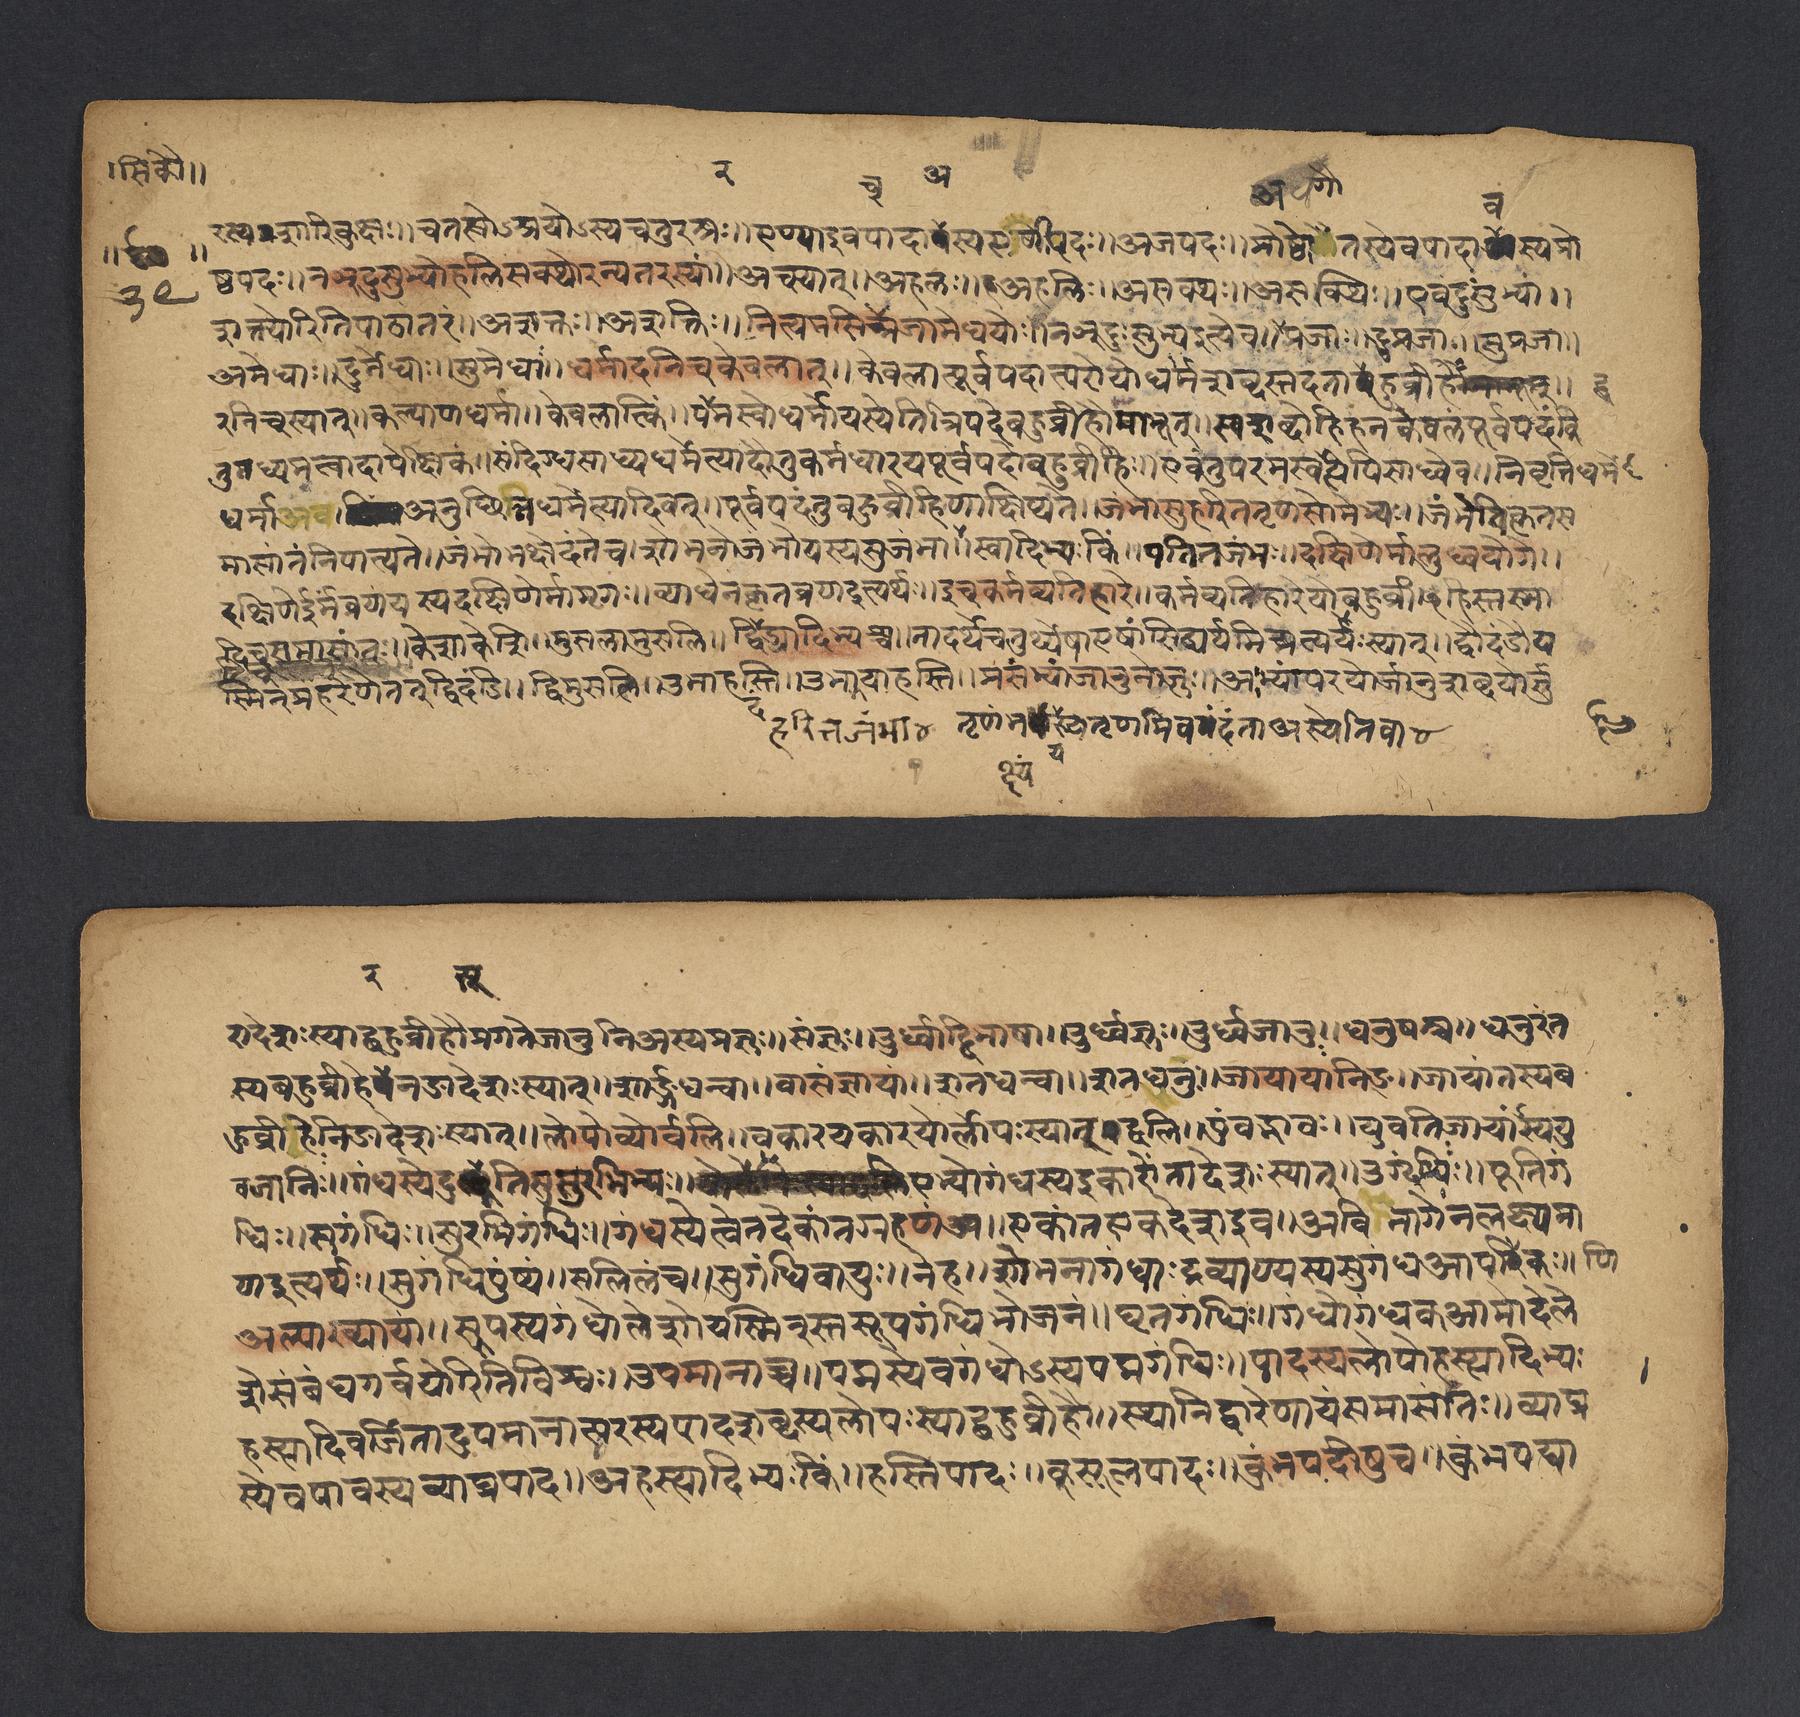 ।सिकौ॥
र
चु
अ
अथगौ
व
॥६०॥
३९
रस्य शारिकुक्षः॥चतस्रोऽश्रयोऽस्यचतुरश्रः॥एण्याइवपादावस्यएणीपदः॥अजपदः॥प्रोष्ठो तस्येवपादावस्यप्रो
ष्ठपदः॥नञ्दुसुभ्योहलिसक्थ्योरन्यतरस्यां॥अच्स्यात्॥अहलः॥अहलिः॥असक्थः॥असक्थिः॥एवंदुःसुभ्यां॥
शक्त्योरितिपाठांतरं॥अशक्तः॥अशक्तिः॥नित्यमसिच्प्रजामेधयोः॥नञ्दुःसुभ्यइत्येव॥अप्रजाः॥दुष्प्रजाः॥सुप्रजाः॥
अमेधाः॥दुर्मेधाः॥सुमेधाः॥धर्मादनिच्केवलात्॥केवलात्पूर्वपदात्परोयोधर्मशब्दस्तदंताद्बहुव्रीहे
रनिच्स्यात्॥कल्याणधर्मा॥केवलात्किं॥परमस्वोधर्मोयस्येतित्रिपदेबहुव्रीहौमाभूत्॥स्वशब्दोहिहनकेवलंपूर्वपदंकिं
तुमध्यमत्वादापेक्षिकं॥संदिग्धसाध्यधर्मेत्यादौतुकर्मधारयपूर्वपदोबहुव्रीहिः॥एवंतुपरमस्वधर्मेत्यपिसाध्वेव॥निवृत्तिधर्म
धर्माअनुच्छित्तिधर्मेत्यादिवत्॥पूर्वपदंतुबहुव्रीहिणाक्षिप्यते॥जंभासुहरिततृणसोमेभ्यः॥जंभेतिकृतस
मासांतंनिपात्यते॥जंभोभक्ष्येदंतेच।शोभनोजंभोयस्यसुजंभा॥स्वादिभ्यःकिं॥पतितजंभः॥दक्षिणेर्मालुब्धयोगे॥
दक्षिणेईर्मंव्रणंयस्यदक्षिणेर्मामृगः॥व्याधेनकृतव्रणइत्यर्थः॥इच्कर्मव्यतिहारे॥कर्मव्यतिहारेयोबहुव्रीहिस्तस्मा
दिच्समासांतः॥केशाकेशि॥मुसलामुसलि॥द्विदंड्यादिभ्यश्च॥तादर्थ्येचतुर्थ्येषाएषांसिद्ध्यर्थमिच्प्रत्ययःस्यात्॥द्वौदंडौय
स्मिन्प्रहरणेतत्द्विदंडि॥द्विमुसलि॥उभाहस्ति॥उभयाहस्ति॥प्रसंभ्यांजानुनोर्ज्ञुः॥आभ्यांपरयोर्जानुशब्दयोर्ज्ञु
हरितजंभा४ तृणंभक्ष्यंयस्यतृणमिवदंताअस्येतिवा४
र
स्मु
रादेशःस्याद्बहुव्रीहौप्रगतेजानुनिअस्यप्रज्ञुः॥संज्ञुः॥ऊर्ध्वाद्विभाषा॥ऊर्ध्वज्ञुः॥ऊर्ध्वजानुः॥धनुषश्च॥धनुरंत
स्यबहुव्रीहेरनङादेशःस्यात्॥शार्ङ्गधन्वा॥वासंज्ञायां॥शतधन्वा॥शतधनुः॥जायायानिङ्॥जायांतस्यब
हुव्रीहेनिङादेशःस्यात्॥लोपोव्योर्वलि॥वकारयकारयोर्लोपःस्यात्द्वलि॥पुंवद्भावः॥युवतिर्जायास्ययु
वजानिः॥गंधस्येदुत्पूतिसुसुरभिभ्यः॥एभ्योगंधस्यइकारोंतादेशःस्यात्॥उद्गंधिः॥पूतिगं
धिः॥सुगंधिः॥सुरभिगंधिः॥गंधस्येत्वेतदेकांतग्रहणं॥एकांतएकदेशइव॥अविभागेनलक्ष्यमा
णइत्यर्थः॥सुगंधिपुष्पं॥सलिलंच॥सुगंधिवायुः॥नेह॥शोभनागंधाःद्रव्याण्यस्यसुगंधआपणिकः॥ णि
अल्पाख्यायां॥सूपस्यगंधोलेशोयस्मिन्स्तत्सूपगंधिभोजनं॥घृतगंधिः॥गंधोगंधकआमोदेले
शेसंबंधगर्वयोरितिविश्वः॥उपमानाच्च॥पद्मस्येवगंधोऽस्यपद्मगंधिः॥पादस्यलोपोहस्त्यादिभ्यः
हस्त्यादिवर्जितादुपमानात्परस्यपादशब्दस्यलोपःस्याद्बहुव्रीहौ॥स्थानिद्वारेणायंसमासांतः॥व्याघ्र
स्येवपावस्यव्याघ्रपाद॥अहस्त्यादिभ्यःकिं॥हस्तिपादः॥कुसूलपादः॥कुंभपदीषुच॥कुंभपद्या